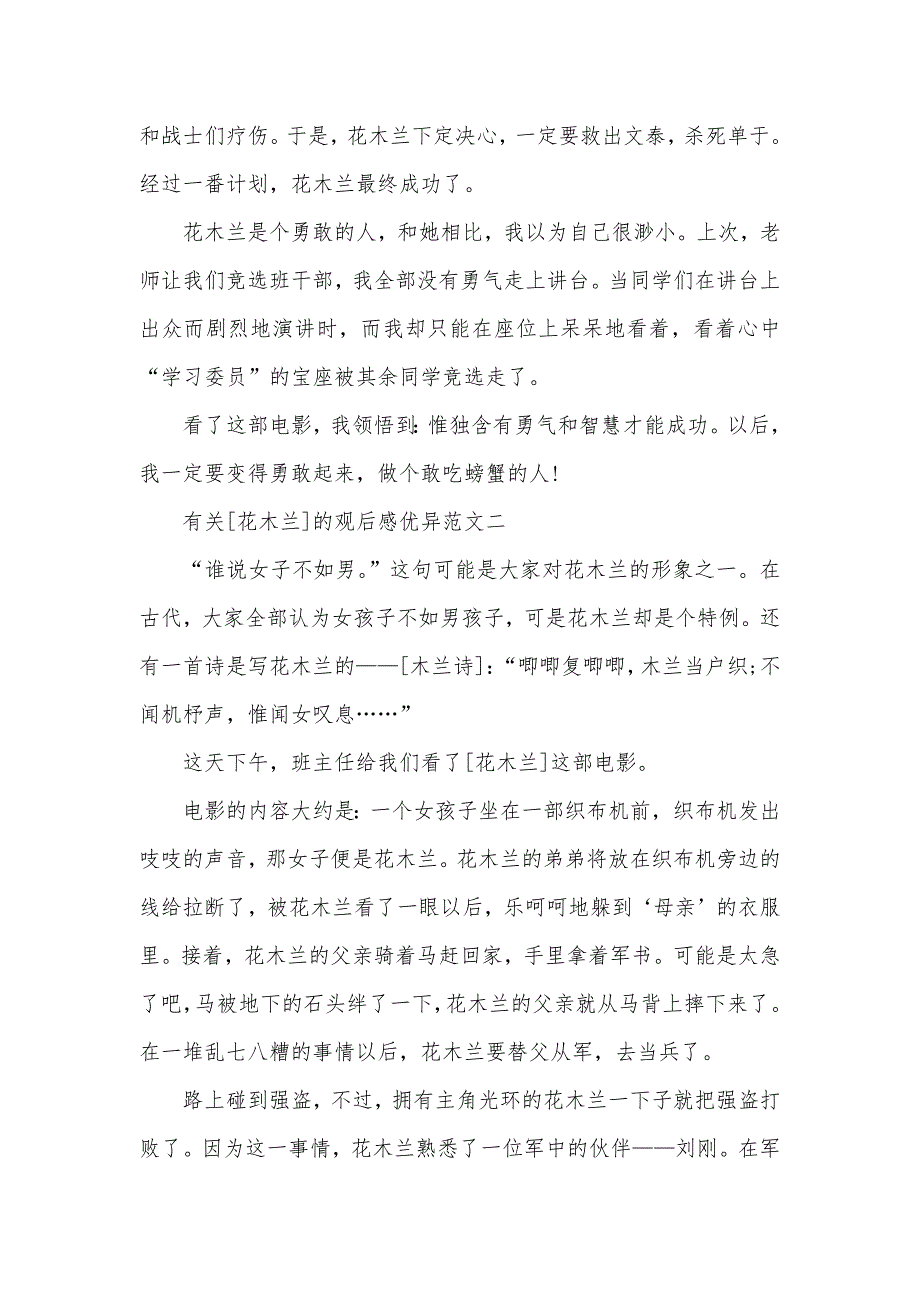 和战士们疗伤。于是，花木兰下定决心，一定要救出文泰，杀死单于。
经过一番计划，花木兰最终成功了。
花木兰是个勇敢的人，和她相比，我以为自己很渺小。上次，老
师让我们竞选班干部，我全部没有勇气走上讲台。当同学们在讲台上
出众而剧烈地演讲时，而我却只能在座位上呆呆地看着，看着心中
“学习委员”的宝座被其余同学竞选走了。
看了这部电影，我领悟到：惟独含有勇气和智慧才能成功。以后，
我一定要变得勇敢起来，做个敢吃螃蟹的人!
有关[花木兰]的观后感优异范文二
“谁说女子不如男。”这句可能是大家对花木兰的形象之一。在
古代，大家全部认为女孩子不如男孩子，可是花木兰却是个特例。还
有一首诗是写花木兰的——[木兰诗]：“唧唧复唧唧，木兰当户织;不
闻机杼声，惟闻女叹息……”
这天下午，班主任给我们看了[花木兰]这部电影。
电影的内容大约是：一个女孩子坐在一部织布机前，织布机发出
吱吱的声音，那女子便是花木兰。花木兰的弟弟将放在织布机旁边的
线给拉断了，被花木兰看了一眼以后，乐呵呵地躲到‘母亲’的衣服
里。接着，花木兰的父亲骑着马赶回家，手里拿着军书。可能是太急
了吧，马被地下的石头绊了一下，花木兰的父亲就从马背上摔下来了。
在一堆乱七八糟的事情以后，花木兰要替父从军，去当兵了。
路上碰到强盗，不过，拥有主角光环的花木兰一下子就把强盗打
败了。因为这一事情，花木兰熟悉了一位军中的伙伴——刘刚。在军